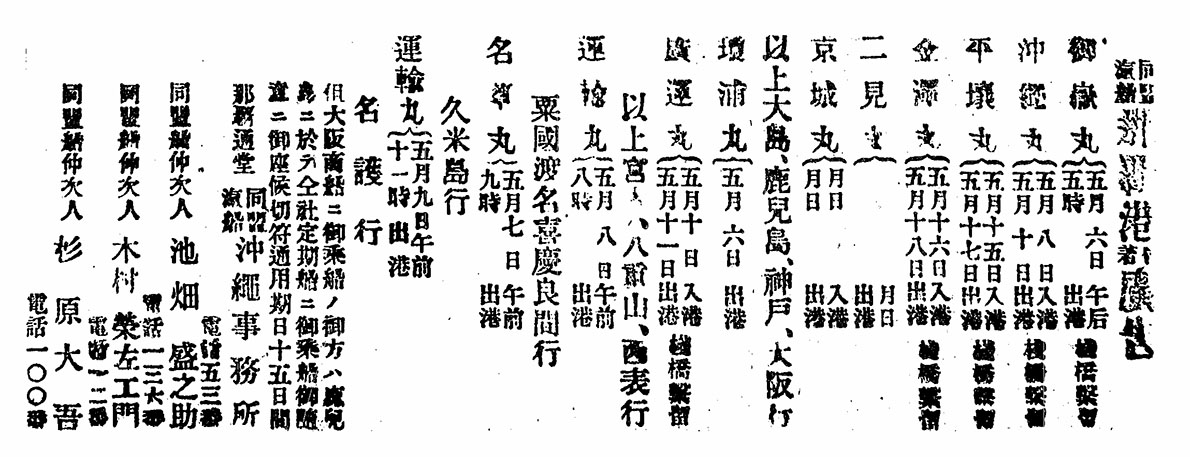 同盟汽船 那覇港
御嶽丸 五月六日午后五時出港 棧橋繫留
沖繩丸 五月八日入港 五月十日出港 棧橋繫留
平壤丸 五月十五日入港 五月十七日出港 棧橋繫留
金澤丸 五月十六日入港 五月十八日出港 棧橋繫留
二見丸 月日出港
京城丸 月日入港 月日出港
以上大島、鹿兒島、神戶、大阪行
瓊浦丸 五月六日出港
廣運丸 五月十日入港 五月十一日出港 棧橋繫留
以上宮古、八重山、西表行
運輸丸 五月八日午前八時出港
粟國渡名喜慶良間行
名護丸 五月七日午前九時出港
久米島行
運輸丸 五月九日午前十一時出港
名護行
但大阪商船ニ御乘船ノ御方ハ鹿兒
島ニ於テ仝社定期船ニ御乘船御隨
意ニ御座候切符通用期日十五日間
那覇通堂 同盟汽船 沖繩事務所
電話五三番
同盟船仲次人 池畑盛之助
電話一三六番
同盟船仲次人 木村榮左工門
電話一二番
同盟船仲次人 杉原大吾
電話一〇〇番